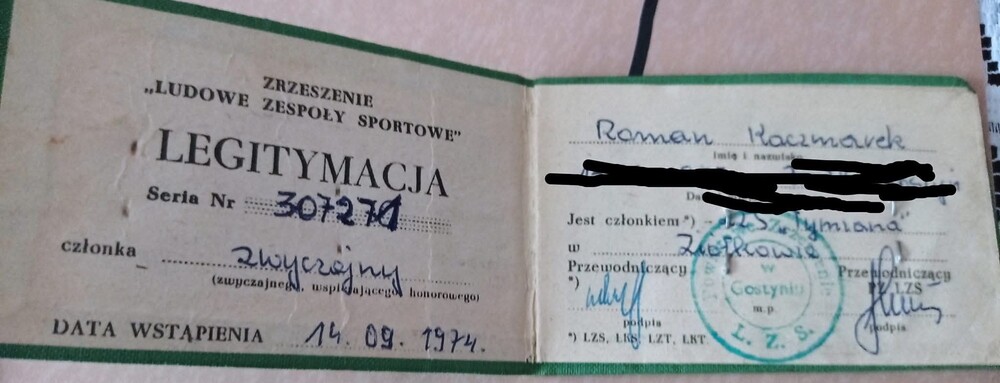 ZRZESZENIE
„LUDOWE ZESPOŁY SPORTOWE”
LEGITYMACJA
Seria Nr 307271
członka zwyczajny
(zwyczajnego, wspierającego honorowego)
DATA WSTĄPIENIA 14. 09. 1974.
Roman Kaczmarek
imię i nazwisko
Jest członkiem *) - LZS „Tymiana”
w Ziółkowie
Przewodniczący
*)
podpis
Przewodniczący
PZ LZS
podpis
*) LZS, LKS, LZT, LKT
Zrzeszenie
w
Gostyniu
m.p.
L. Z. S.